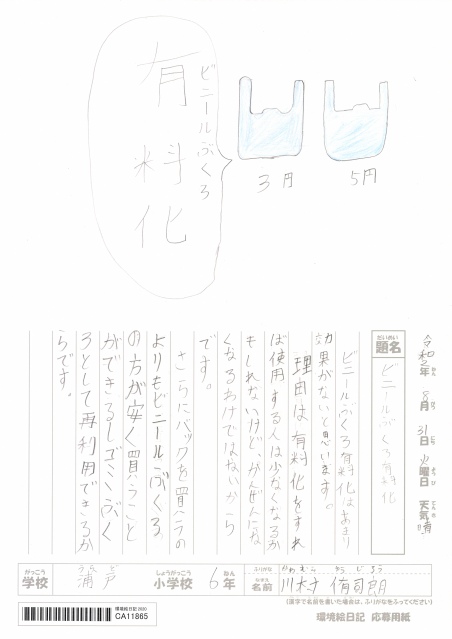 有料化
ビニールぶくろ
3円
5円
令和2年 8月31日 火曜日 天気 晴
ねん
がつ
にち
ようび
てんき
だいめい
題名
ビニールぶくろ有料化
ビニールぶくろ有料化はあまり
効果がないと思います。
理由は有料化をすれ
ば使用する人は少なくなるか
もしれないけど、かんぜんにな
くなるわけではないから
です。
さらにバックを買うの
よりもビニールぶくろ
の方が安く買うこと
ができるしゴミぶく
ろとして再利用できるか
らです。
がっこう
学校
うらど
浦戸
しょうがっこう
小学校
6年
ねん
ふりがな
なまえ
名前
川村 侑司朗
(漢字で名前を書いた場合は、ふりがなをふってください)
環境絵日記2020
CA11865
環境絵日記 応募用紙